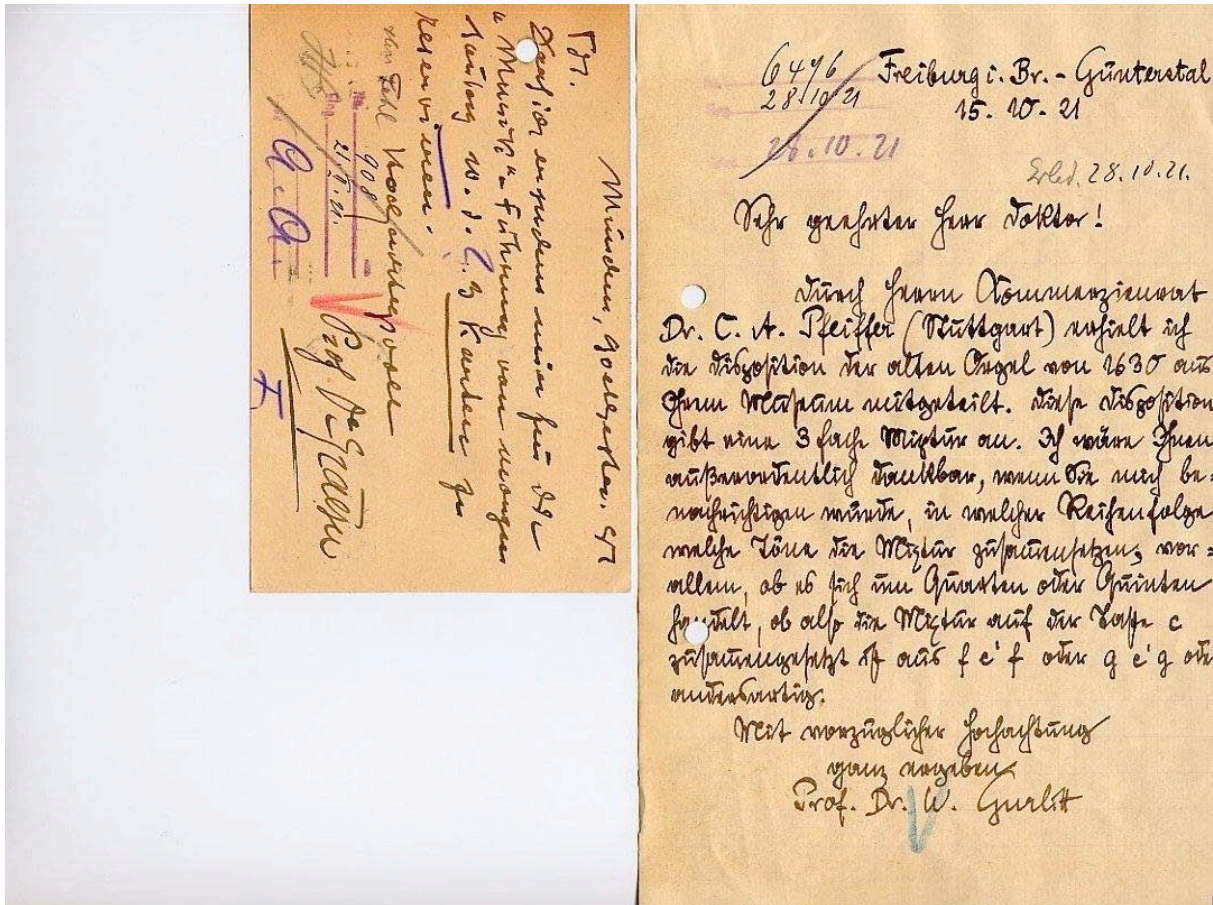 München, 
Darf ich ersuchen mir für die
"Musik"-Führung von morgen
2-3 Karten zu
reservieren.
Hochachtungsvoll
908
21/X 21.
Prof. Dr
6496
28.10.21
28.10.21
Freiburg i. Br. - Günterstal
15.10.21
Erled. 28.10.21.
Sehr geehrter Herr Doktor!
Durch Herrn Kommerzienrat
Dr. C. A. Pfeiffer (Stuttgart) erhielt ich
die Disposition der alten Orgel von 1630 aus
Ihrem Museum mitgeteilt. Diese Disposition
gibt eine 3 fache Mixtur an. Ich wäre Ihnen
außerordentlich dankbar, wenn Sie mich be=
nachrichtigen würde, in welcher Reihenfolge
welche Töne die Mixtur zusammensetzen, vor=
allem, ob es sich um Quarten oder Quinten
handelt, ob also die Mixtur auf der Taste c
zusammengesetzt ist aus f c' f oder g c' g ode
andersartig.
Mit vorzüglicher Hochachtung
ganz ergeben
Prof. Dr. W. Gurlitt